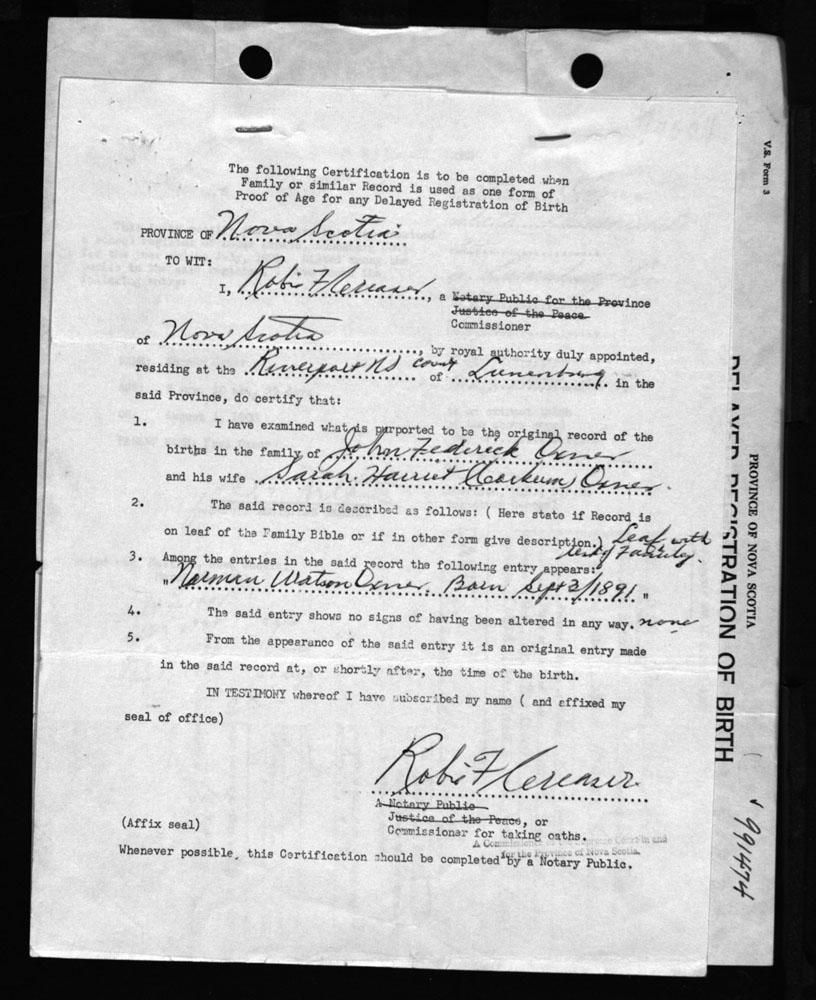 The following Certification is to be completed when
Family or similar Record is used as one form of
Proof of Age for any Delayed Registration of Birth
PROVINCE OF Nova Scotia
TO WIT:
I, Robie F Creaser, a Notary Public for the Province
Justice of the Peace
Commissioner
of Nova Scotia, by royal authority duly appointed,
residing at the Riverport NS County of Lunenburg in the
said Province, do certify that:
1. I have examined what is purported to be the original record of the
births in the family of John Federick Oxner
and his wife Sarah Harriet (Corkum) Oxner.
2. The said record is described as follows: ( Here state if Record is
on leaf of the Family Bible or if in other form give description.) Leaf with
list of Family.
3. Among the entries in the said record the following entry appears:
"Norman Watson Oxner. Born Sept 3/1891."
4. The said entry shows no signs of having been altered in any way. none
5. From the appearance of the said entry it is an original entry made
in the said record at, or shortly after, the time of the birth.
IN TESTIMONY whereof I have subscribed my name ( and affixed my
seal of office)
Robie F Creaser
A Notary Public
Justice of the Peace, or
(Affix seal) Commissioner for taking oaths.
A Commissioner of the Supreme Court in and
for the Province of Nova Scotia.
Whenever possible, this Certification should be completed by a Notary Public.
V.S. Form 3
PROVINCE OF NOVA SCOTIA
DELAYED REGISTRATION OF BIRTH
991474